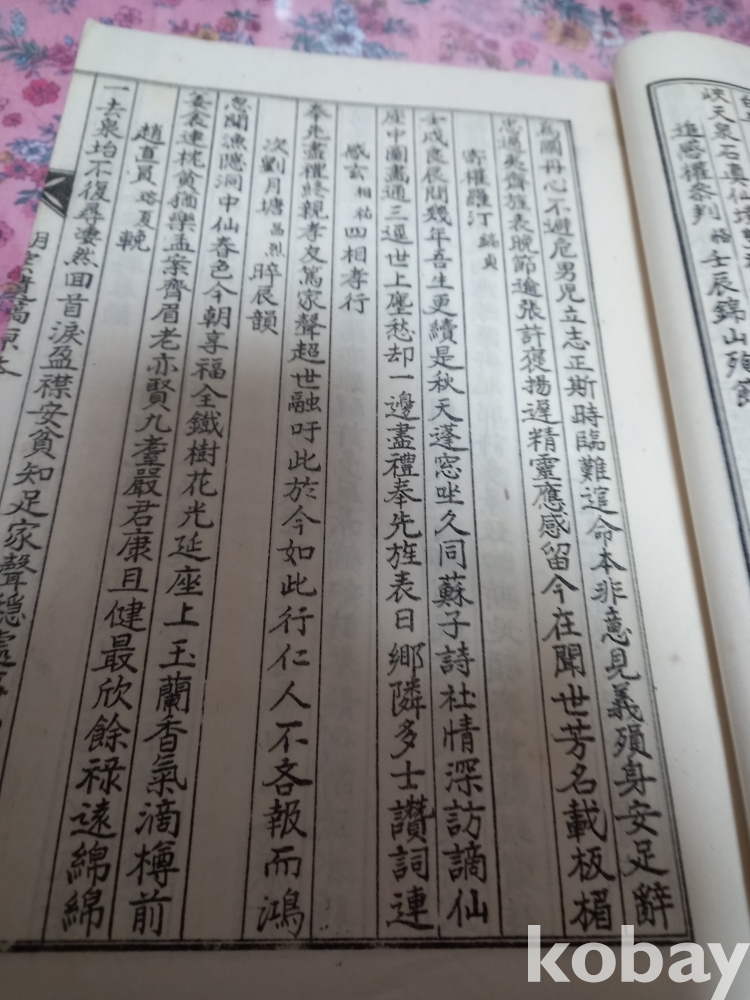 峽天泉石眞仙
追感權參判 壬辰錦山殉節
爲國丹心不避危男児立志正斯時臨難這命本非意見義殞身安足辭
忠過夷齋旌表晩節逾張許褒揚遲精靈應感留今在聞世芳名載板楣
寄權羅汀 貞
壬戌良辰問幾年吾生更續是秋天蓬窓坐久同蘇子詩社情深訪謫仙
座中圖畵通三逕世上塵愁却一邊盡禮奉先旌表日鄕隣多士讚詞連
感玄相祐四相孝行
奉先盡禮終親孝友篤家聲超世融吁此於今如此行仁人不吝報而鴻
次劉月塘昌烈晬辰韻
忽聞漁隱洞中仙春色今朝享福全鐵樹花光延座上玉蘭香氣滴樽前
連枕貧猶樂孟案齊眉老亦賢九耋嚴君康且健最欣餘祿遠綿綿
趙直員 夏輓
一去泉坮不復尋凄然回首淚盈襟安貧知足家聲
月
kobay